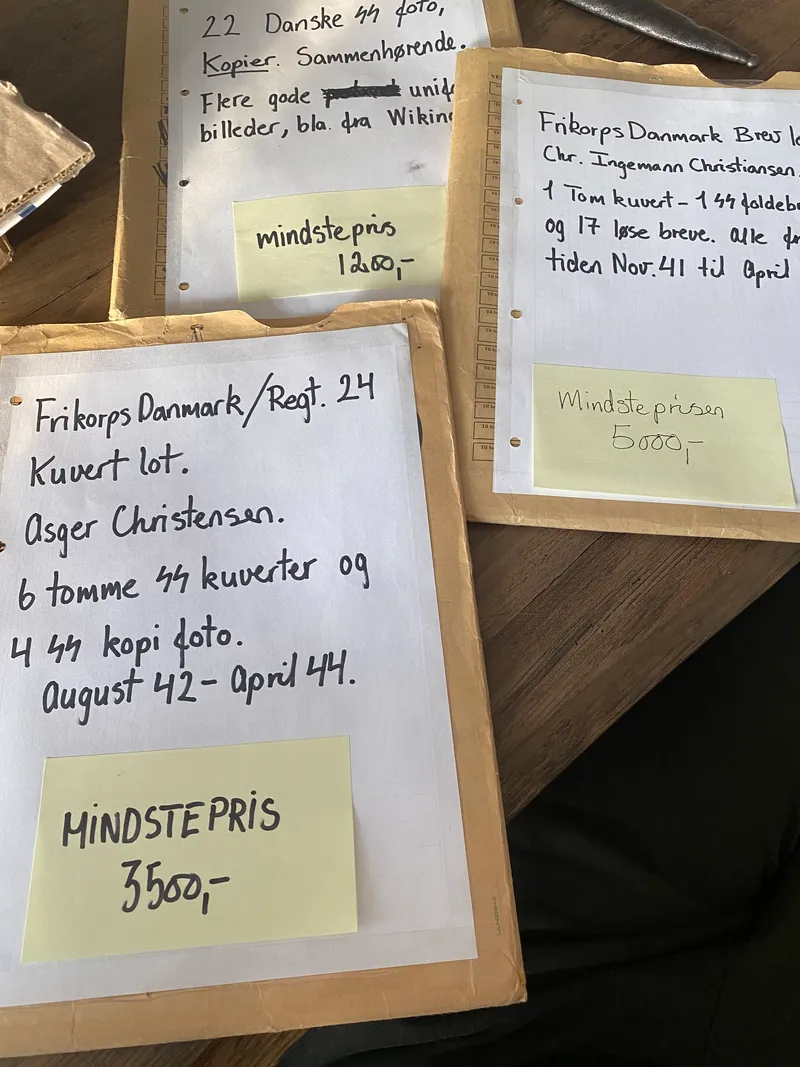 22 Danske SS foto,
Kopier. Sammenhørende.
Flere gode
billeder, bla. fra
mindstepris
1200,-
Frikorps Danmark Brev
Chr. Ingemann Christiansen.
1 Tom kuvert - 1 SS
og 17 løse breve. alle
tiden Nov. 41 til april
Mindsteprisen
5000,-
Frikorps Danmark/Regt. 24
Kuvert lot.
Asger Christensen.
6 tomme SS kuverter og
4 SS kopi foto.
august 42 - april 44.
MINDSTEPRIS
3500,-